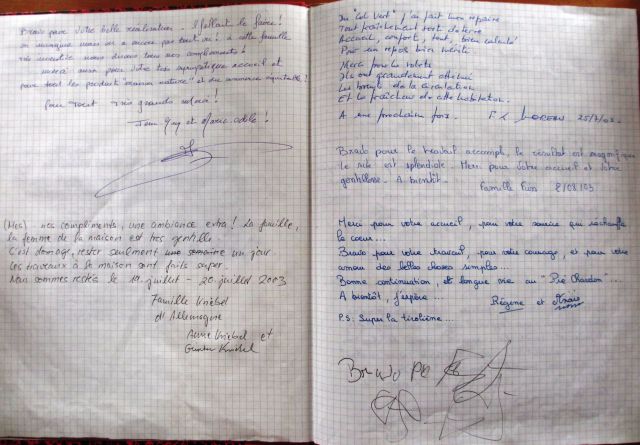 Bravo pour votre belle réalisation. Il fallait le faire!
on manque mais on a encore pas tout vu! à cette famille
très investie nous disons tous nos compliments!
merci aussi pour votre très sympathique accueil et
pour tout les produits "nature" et du commerce équitable!
Pour tout très grands merci!
Jean Guy et Marie Odile!
(Mes) nos compliments, une ambiance extra! La famille,
la femme de la maison est très gentille.
C'est domage, rester seulment une semaine un jour.
Les travaux à la maison sont faits super.
Nan sommes restés le 19 juillet - 20 juillet 2003
Famille Knöbel
d'Allemagne
Anne Knöbel et
Günter Knöbel
Du "Col Vert" j'ai fait mon repaire
Tout fraîchement sorti de terre
Accueil, confort, tout, bien calculé
Pour un repos bien mérité
Merci pour les volets
Ils ont grandement atténué
Les bruits de la circulation
Et la fraîcheur de cette habitation.
A une prochaine fois. 25/7/03.
Bravo pour le travail accompli, le résultat est magnifique
le site est splendide. Merci pour votre accueil et votre
gentillesse. A bientôt. Famille 8/08/03
Merci pour votre accueil, pour votre sourire qui réchauffe
le coeur...
Bravo pour votre travail, pour votre courage, et pour votre
amour des belles choses simples...
Bonne continuation, et longue vie au "Pié Chardon"...
A bientôt, j'espère... Régine et
P.S: Super la tirolième...
Bravo